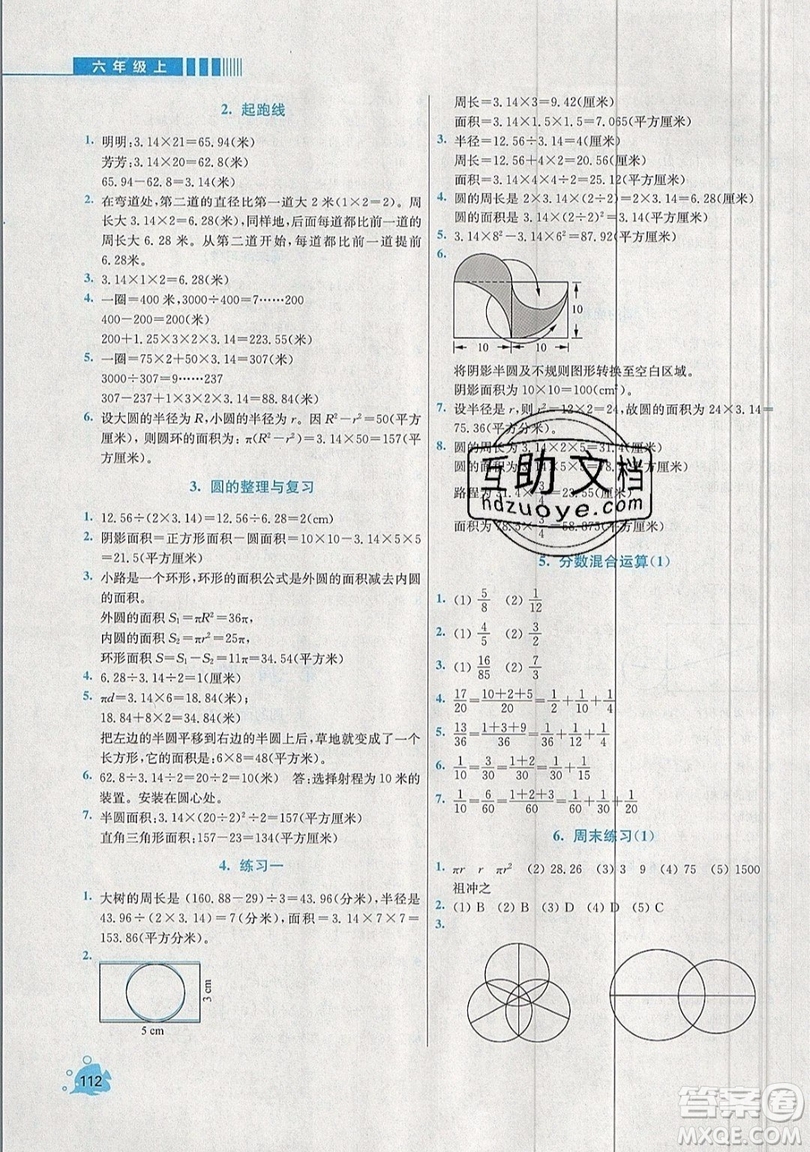 六年级上
2. 起跑线
1. 明明:3.14×21=65.94(米)
芳芳:3.14×20=62.8(米)
65.94-62.8=3.14(米)
2. 在弯道处,第二道的直径比第一道大 2 米(1×2=2)。周
长大 3.14×2=6.28(米),同样地,后面每道都比前一道的
周长大 6.28 米。从第二道开始,每道都比前一道提前
6.28米。
3. 3.14×1×2=6.28(米)
4. 一圈=400 米,3000÷400=7……200
400-200=200(米)
200+1.25×3×2×3.14=223.55(米)
5. 一圈=75×2+50×3.14=307(米)
3000÷307=9……237
307-237+1×2×3×3.14=88.84(米)
6. 设大圆的半径为 R,小圆的半径为 r。因 R²-r²=50(平方
厘米),则圆环的面积为:π(R²-r²)=3.14×50=157(平方
厘米)。
3. 圆的整理与复习
1. 12.56÷(2×3.14)=12.56÷6.28=2(cm)
2. 阴影面积=正方形面积-圆面积=10×10-3.14×5×5
=21.5(平方厘米)
3. 小路是一个环形,环形的面积公式是外圆的面积减去内圆
的面积。
外圆的面积 S₁=πR²=36π,
内圆的面积 S₂=πr²=25π,
环形面积 S=S₁-S₂=11π=34.54(平方米)
4. 6.28÷3.14÷2=1(米)
5. πd=3.14×6=18.84(米);
18.84+8×2=34.84(米)
把左边的半圆平移到右边的半圆上后,草地就变成了一个
长方形,它的面积是:6×8=48(平方米)
6. 62.8÷3.14÷2=20÷2=10(米) 答:选择射程为 10 米的
装置。安装在圆心处。
7. 半圆面积:3.14×(20÷2)²÷2=157(平方厘米)
直角三角形面积:157-23=134(平方厘米)
4. 练习一
1. 大树的周长是 (160.88-29)÷3=43.96(分米),半径是
43.96÷(2×3.14)=7(分米),面积=3.14×7×7=
153.86(平方分米)。
2.
3 cm
5 cm
112
周长=3.14×3=9.42(厘米)
面积=3.14×1.5×1.5=7.065(平方厘米)
3. 半径=12.56÷3.14=4(厘米)
周长=12.56÷2+4×2=20.56(厘米)
面积=3.14×4×4÷2=25.12(平方厘米)
4. 圆的周长是 2×3.14×(2÷2)=2×3.14=6.28(厘米)
圆的面积是 3.14×(2÷2)²=3.14(平方厘米)
5. 3.14×8²-3.14×6²=87.92(平方厘米)
6.
10
10
10 10
将阴影半圆及不规则图形转换至空白区域。
阴影面积为 10×10=100(cm²)。
7. 设半径是 r,则 r²=12×2=24,故圆的面积为 24×3.14=
75.36(平方厘米)。
8. 圆的周长为 3.14×2×5=
圆的面积为 3.14×5²=
路程为31.4×
面积为78.5× 3/4 =58.875(平方厘米)
互助文档
hdzuoye.com
5. 分数混合运算(1)
1. (1) 5/8 (2) 1/12
2. (1) 4/5 (2) 3/2
3. (1) 16/85 (2) 7/3
4. 17/20=(10+2+5)/20=1/2+1/10+1/4
5. 13/36=(1+3+9)/36=1/36+1/12+1/4
6. 1/10=3/30=(1+2)/30=1/30+1/15
7. 1/10=6/60=(1+2+3)/60=1/60+1/30+1/20
6. 周末练习(1)
1. (1) πr r πr² (2) 28.26 (3) 3 9 (4) 75 (5) 1500
祖冲之
2. (1) B (2) B (3) D (4) B (5) C
3.
答案圈
MXQE.COM